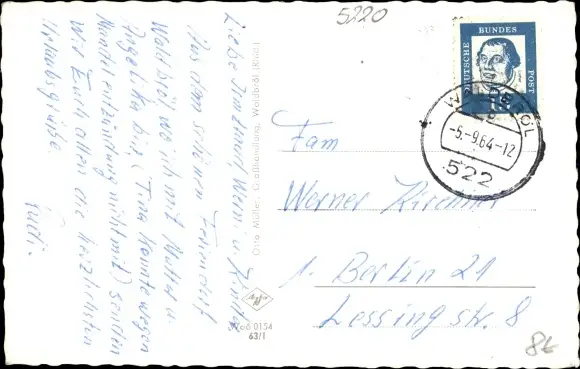 5220
Liebe Irmtraud Werner u. Kinder
Aus dem schönen Feriendorf
Waldbröl wo ich mit Mutter u.
Angelika bin (Tina konnte wegen
Mandelentzündung nicht mit) senden
wir Euch allen die herzlichsten
Urlaubsgrüße.
Otto Müller, Großhandlung, Waldbröl (Rhld.)
Agfa
0154
63/1
DEUTSCHE BUNDES POST
15
WALDBRÖL
b
-5.-9.64-12
522
Fam
Werner Kirchner
1. Berlin 21
Lessingstr. 8
8€